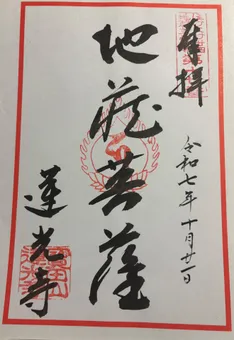 奉拝
令和七年十月廿一日
地蔵菩薩
蓮光寺